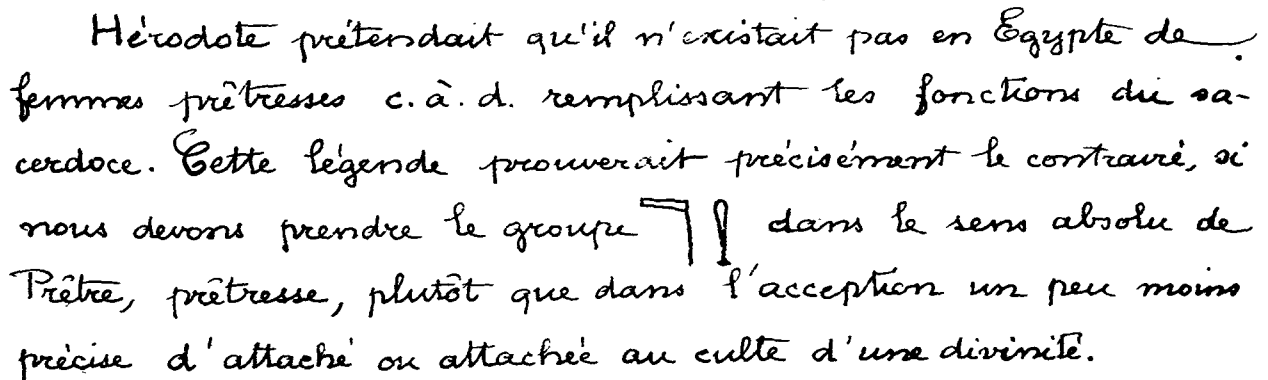 Hérodote prétendait qu'il n'existait pas en Egypte de
femmes prêtresses c.à.d. remplissant les fonctions du sa-
cerdoce. Cette légende prouverait précisément le contraire, si
nous devons prendre le groupe 𓊹𓍛 dans le sens absolu de
Prêtre, prêtresse, plutôt que dans l'acception un peu moins
précise d'attaché ou attachée au culte d'une divinité.